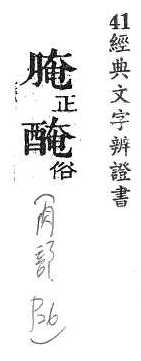 41經典文字辨證書
腌正
醃俗
肉部
P26